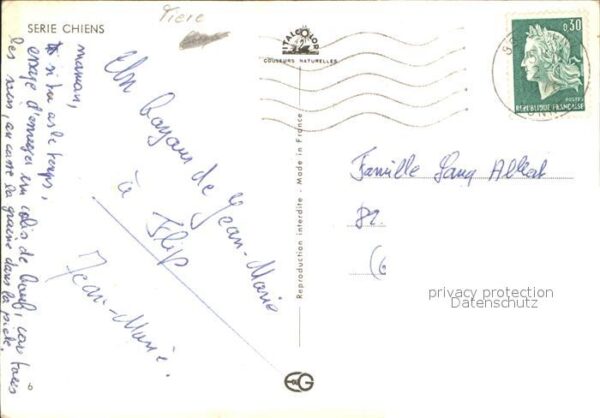 Tiere
SERIE CHIENS
ITALCOLOR
COULEURS NATURELLES
0,30
POSTES
REPUBLIQUE FRANÇAISE
Un bonjour de Jean-Marie
à Flip
Jean-Marie.
maman,
si tu as le temps,
essaye d'envoyer un colis de bouf, car tous
les soirs, on casse la graine dans la piole.
Reproduction interdite - Made in France
Famille Lang Albert
82
(6
privacy protection
Datenschutz